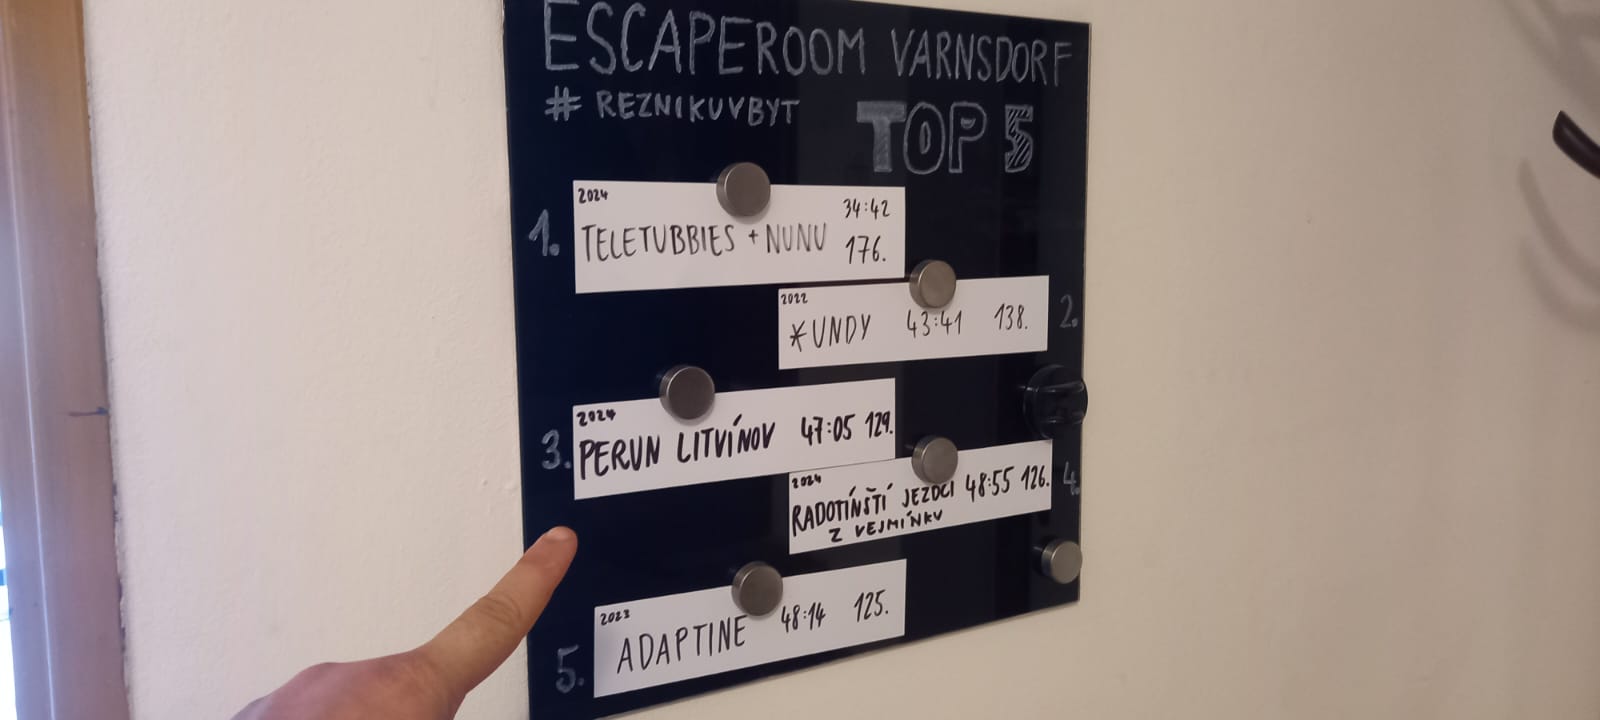 ESCAPEROOM VARNSDORF
# REZNIKUVBYT TOP 5
1.
2024
34:42
TELETUBBIES + NUNU
176.
2.
2022
*UNDY 43:41 138.
3.
2024
PERUN LITVÍNOV 47:05 129.
4.
2024
RADOTÍNŠTÍ JEZDCI 48:55 126.
Z VEJMÍNKU
5.
2023
ADAPTINE 48:14 125.